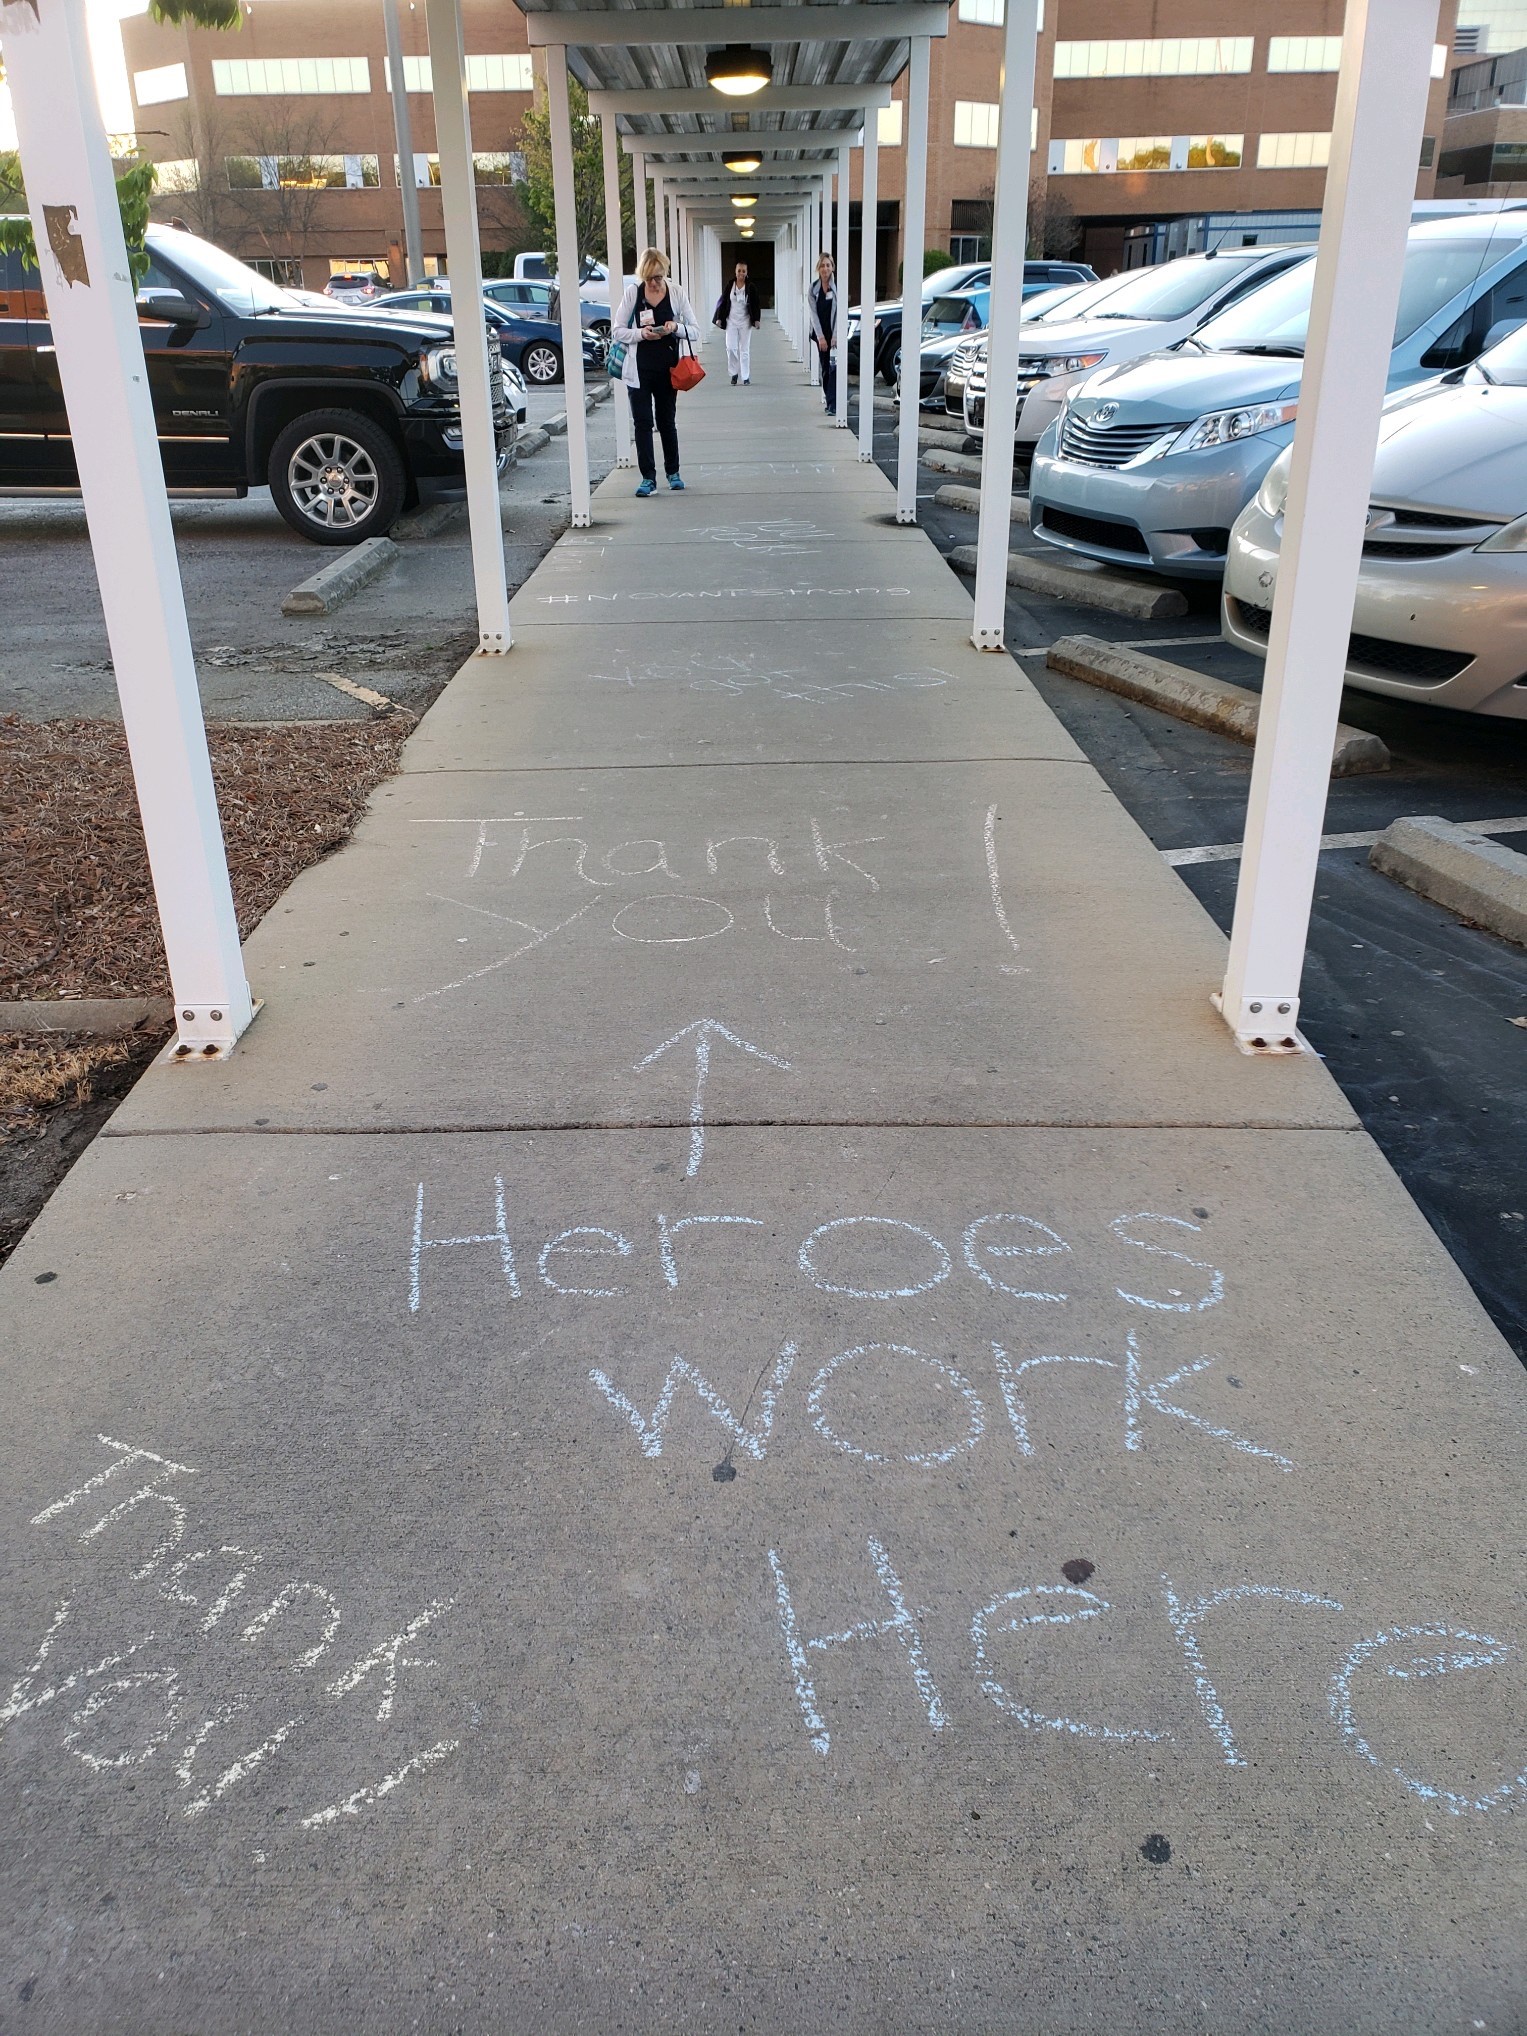 YOU
ROCK!
#NOVANTStrong
You've
got this!
Thank
you!
Heroes
work
Here
Thank
You
DENALI